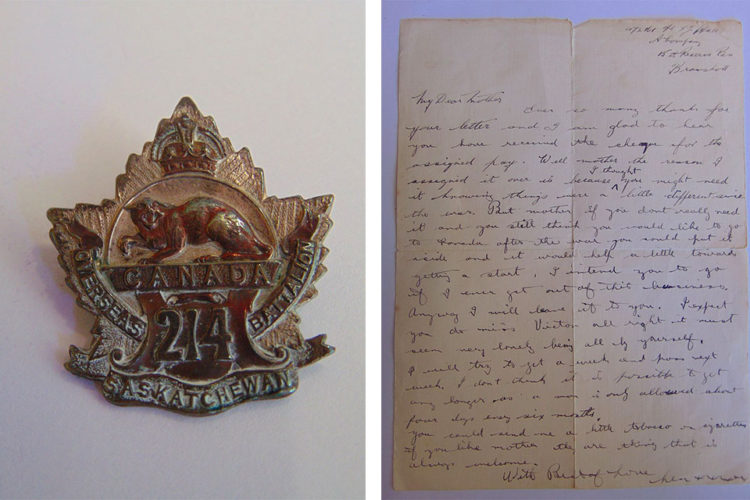 CANADA
OVERSEAS
BATTALION
214
SASKATCHEWAN
A Company
15th Reserve Bn
Bramshott
My Dear Mother
Ever so many thanks for
your letter and I am glad to hear
you have received the cheque for the
assigned pay. Well mother the reason I
I thought
assigned it over is because you might need
it knowing things were a little different since
the war. But mother if you dont really need
it and you still think you would like to go
to Canada after the war you could put it
aside and it would help a little towards
getting a start, I intend you to go
if I ever get out of this business.
Anyway I will leave it to you. I expect
you do miss all right it must
seem very lonely being all by yourself.
I will try to get a week end pass next
week. I dont think it is possible to get
any longer as a man is only allowed about
four days every six months.
you could send me a little tobacco or cigarettes
if you like mother they are thing that is
always welcome.
With of love